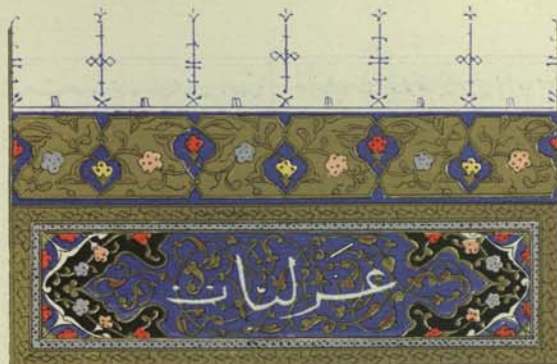 غَزلیات